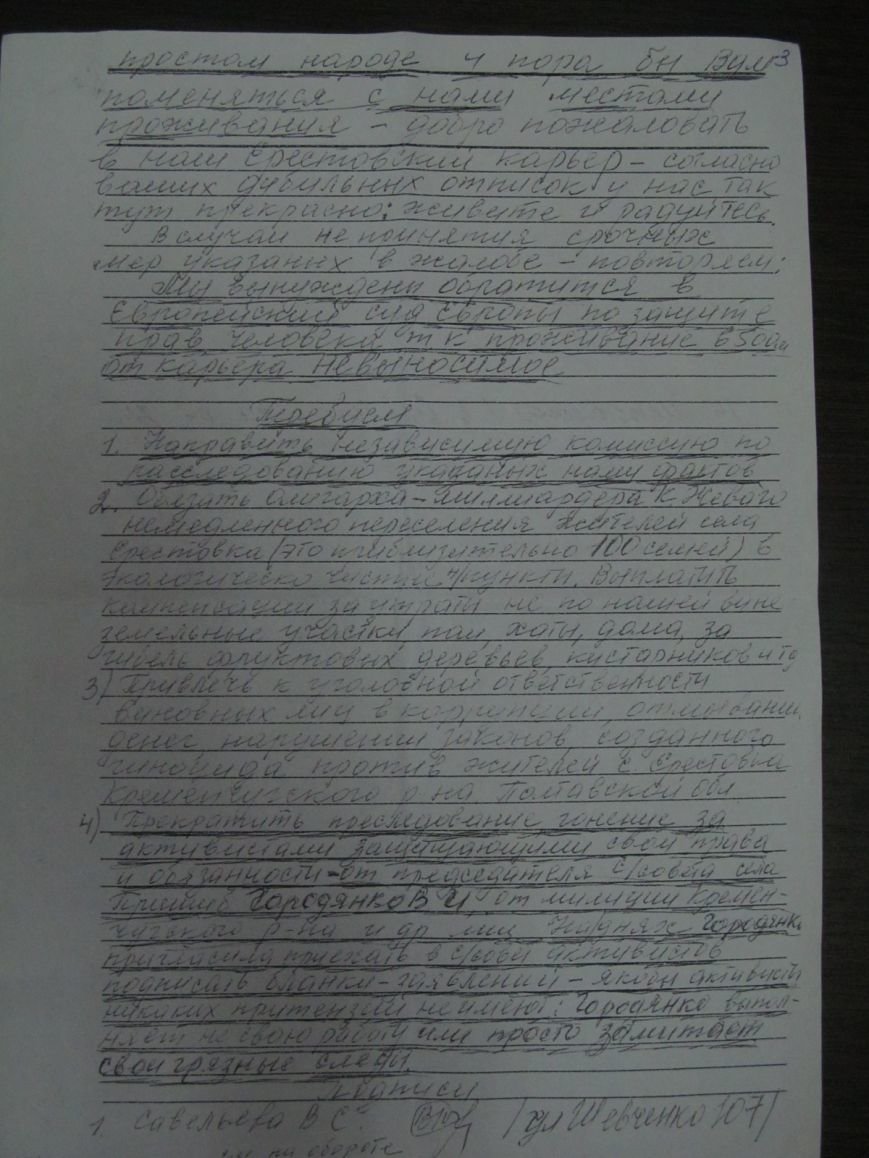 3
простом народе и пора бы Вам
поменяться с нами местами
проживания – добро пожаловать
в наш Еристовский карьер – согласно
ваших дубильных отписок у нас так
тут прекрасно: живите и радуйтесь.
В случаи непринятия срочных
мер указаных в жалобе – повторяем:
Мы вынуждены обратится в
Европейский суд Европы по защите
прав человека т к проживание в 500м
от карьера невыносимое
Требуем
1. Направить независимую комиссию по
расследованию указаных нами фактов
2. Обязать олигарха – миллиардера К Жеваго
немедленного переселения жителей села
Еристовка (это приблизительно 100 семей) в
экологическо чистый н/пункт. Выплатить
компенсации за утраты не по нашей вине
земельные участки, паи, хаты, дома, за
гибель фруктовых деревьев, кустарников и тд
3) Привлечь к уголовной ответственности
виновных лиц в коррупции, отмывании
денег, нарушении законов созданного
гиноцида против жителей с. Еристовка
Кременчугского р-на Полтавской обл
4) Прекратить преследование гонение за
активистами защищающими свои права
и обязанности – от председателя с/совета села
Городянко В И, от милиции Кремен-
чугского р-на и др лиц Городянко
пригласила приехать в с/совет активистов
подписать бланки – заявлений – якобы активисты
никаких притензий не имеют: Городянко выпол-
няет не свою работу или просто заметает
свои грязные следы.
подписи
1. Савельева В С. /ул Шевченко 107/
см на обороте